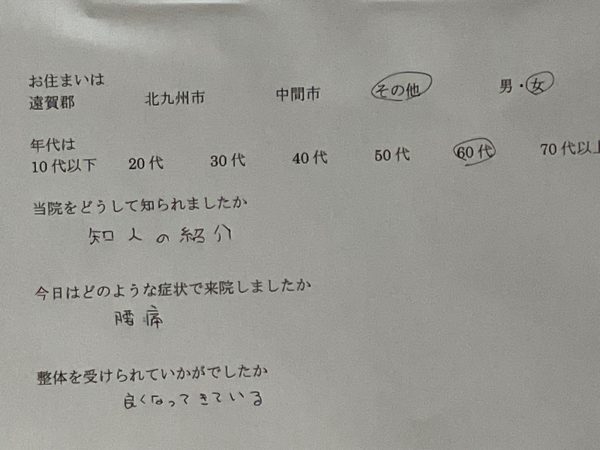 お住まいは
遠賀郡 北九州市 中間市 その他 男・女
年代は
10代以下 20代 30代 40代 50代 60代 70代以上
当院をどうして知られましたか
知人の紹介
今日はどのような症状で来院しましたか
腰痛
整体を受けられていかがでしたか
良くなってきている